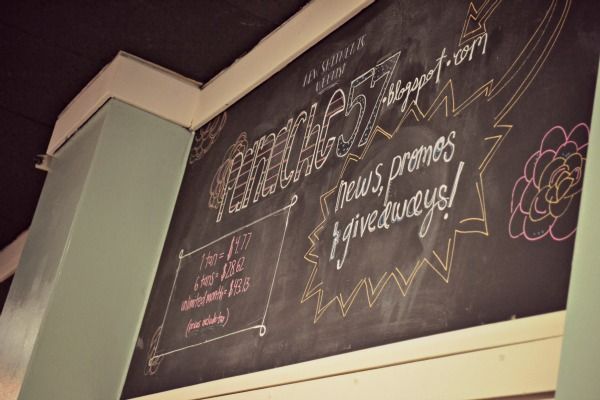 panache57.blogspot.com
news, promos
& giveaways!
1 tan = $4.77
6 tans = $28.62
unlimited month = $43.13
(prices include tax)